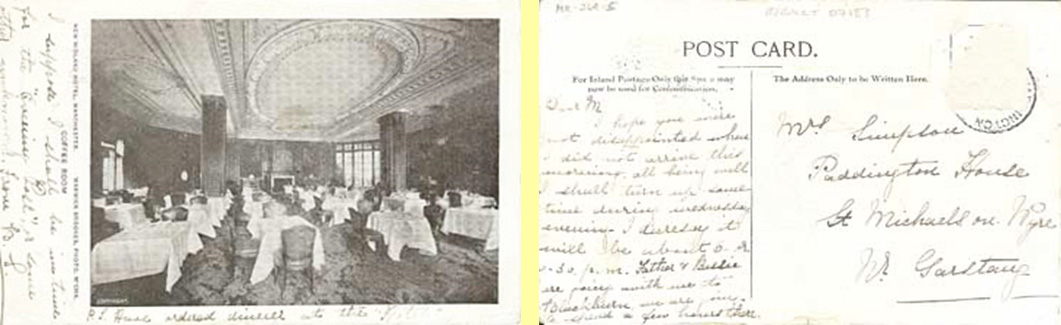 I suppose I shall be in time
for the "evening Post" & some
from B. S
NEW MIDLAND HOTEL, MANCHESTER.
COFFEE ROOM
WARWICK BROOKES, PHOTO, M/CHR.
COPYRIGHT
P.S. Have ordered dinner at the "Hotel"
POST CARD.
For Inland Postage Only this Space may
now be used for Communication.
The Address Only to be Written Here.
Dear M
I hope you were
not disappointed when
I did not arrive this
morning. all being well
I shall turn up some
time during wednesday
evening. I daresay it
will be about 6 or
6-30 p.m. Father & Bessie
are going with me to
Blackburn we are
to spend a few hours there.
Mrs Simpson
Paddington House
St Michaels on Wyre
Nr Garstang
INGTON